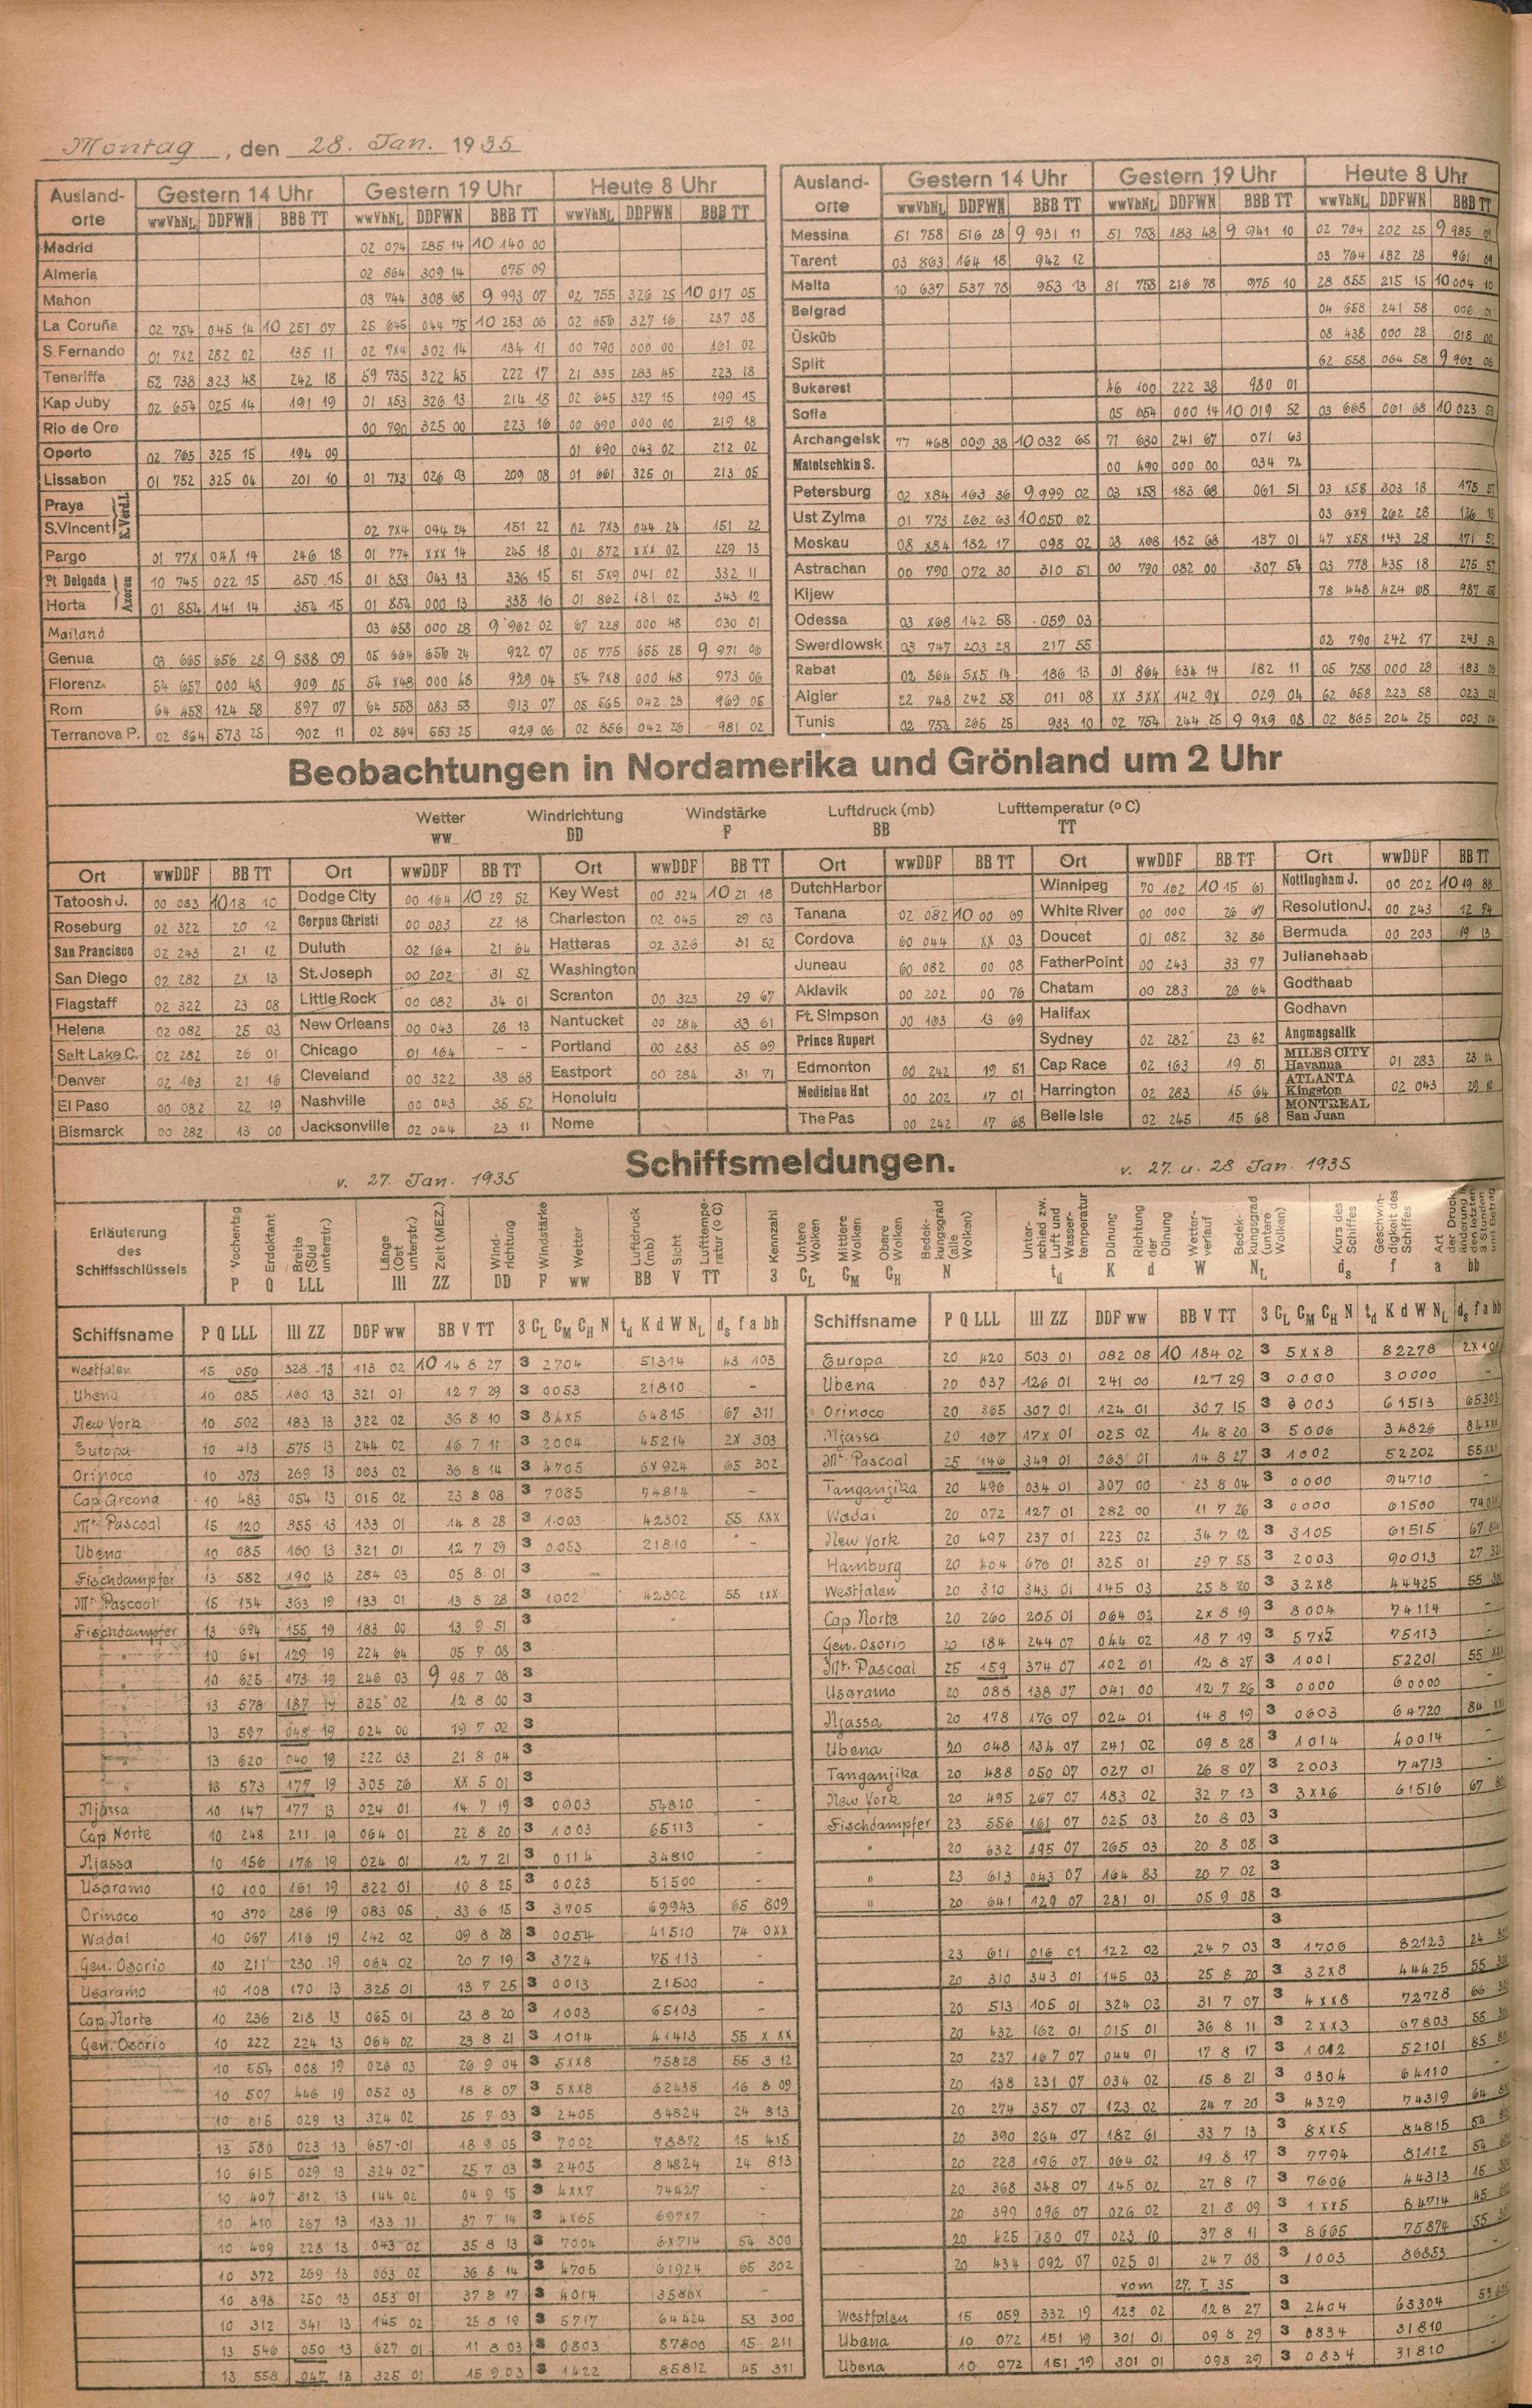 Montag, den 28. Jan. 1935
Ausland-orte Gestern 14 Uhr Gestern 19 Uhr Heute 8 Uhr
wwVhNL DDFWN BBB TT wwVhNL DDFWN BBB TT wwVhNL DDFWN BBB TT
Madrid 02 074 285 14 10 140 00
Almeria 02 864 309 14 075 09
Mahon 03 744 308 68 9 993 07 02 755 326 25 10 017 05
La Coruña 02 754 045 14 10 251 07 25 645 044 75 10 253 06 02 656 327 16 237 08
S. Fernando 01 7X2 282 02 135 11 02 7X4 302 14 134 11 00 790 000 00 161 02
Teneriffa 52 738 323 48 242 18 59 735 322 45 222 17 21 835 283 45 223 18
Kap Juby 02 654 025 14 191 19 01 X53 326 13 214 18 02 645 327 15 199 15
Rio de Oro 00 790 325 00 223 16 00 690 000 00 219 18
Oporto 02 765 325 15 194 09 01 690 043 02 212 02
Lissabon 01 752 325 04 201 10 01 7X3 026 03 209 08 01 661 325 01 213 05
Praya
S.Vincent K.Verd.I. 02 7X4 044 24 151 22 02 7X3 044 24 151 22
Pargo 01 77X 04X 14 246 18 01 774 XXX 14 245 18 01 872 XXX 02 229 13
Pt Delgada 10 745 022 15 350 15 01 853 043 13 336 15 51 5X9 041 02 332 11
Horta Azoren 01 854 141 14 354 15 01 854 000 13 338 16 01 862 181 02 343 12
Mailand 03 658 000 28 9 962 02 67 228 000 48 030 01
Genua 03 665 656 28 9 888 09 05 664 656 24 922 07 05 775 655 28 9 971 06
Florenz 54 657 000 48 909 05 54 X48 000 48 929 04 54 7X8 000 48 973 06
Rom 64 458 124 58 897 07 64 558 083 58 913 07 05 565 042 28 969 05
Terranova P. 02 864 573 25 902 11 02 864 553 25 929 06 02 856 042 26 981 02
Ausland-orte Gestern 14 Uhr Gestern 19 Uhr Heute 8 Uhr
wwVhNL DDFWN BBB TT wwVhNL DDFWN BBB TT wwVhNL DDFWN BBB TT
Messina 51 758 516 28 9 931 11 51 758 183 48 9 941 10 02 764 202 25 9 985
Tarent 03 863 164 18 942 12 03 764 182 28 961
Malta 10 637 537 78 953 13 81 758 216 78 975 10 28 855 215 15 10 004 10
Belgrad 04 658 241 58 006
Üsküb 08 438 000 28 018
Split 62 558 064 58 9 962 06
Bukarest 46 100 222 38 980 01
Sofia 05 654 000 14 10 019 52 03 668 061 68 10 023
Archangelsk 77 468 009 38 10 032 65 71 680 241 67 071 63
Matotschkin S. 00 490 000 00 034 74
Petersburg 02 X84 163 36 9 999 02 03 X58 183 68 061 51 03 X58 303 18 175
Ust Zylma 01 773 262 63 10 050 62 03 6X9 262 28
Moskau 08 X84 182 17 098 02 03 X68 162 68 137 01 47 X58 143 28 171
Astrachan 00 790 072 30 310 51 00 790 082 00 307 54 03 778 435 18 275 57
Kijew 78 448 424 68 987
Odessa 03 X68 142 58 059 03
Swerdlowsk 03 747 203 28 217 55 02 790 242 17 243
Rabat 02 864 5X5 14 186 13 01 864 634 14 182 11 05 758 000 28 183
Algier 22 748 242 58 011 08 XX 3XX 142 9X 029 04 62 658 223 58 023
Tunis 02 754 265 25 983 10 02 754 244 25 9 9X9 08 02 865 204 25 003
Beobachtungen in Nordamerika und Grönland um 2 Uhr
Wetter Windrichtung Windstärke Luftdruck (mb) Lufttemperatur (° C)
ww DD F BB TT
Ort wwDDF BB TT Ort wwDDF BB TT Ort wwDDF BB TT Ort wwDDF BB TT Ort wwDDF BB TT Ort wwDDF BB TT
Tatoosh J. 00 083 10 18 10 Dodge City 00 164 10 29 52 Key West 00 324 10 21 18 DutchHarbor Winnipeg 70 162 10 15 61 Nottingham J. 00 202 10 19 88
Roseburg 02 322 20 12 Corpus Christi 00 083 22 18 Charleston 02 045 29 03 Tanana 02 082 10 00 69 White River 00 000 26 67 Resolution J. 00 243 12
San Francisco 02 243 21 12 Duluth 02 164 21 64 Hatteras 02 326 31 52 Cordova 60 044 XX 03 Doucet 01 082 32 86 Bermuda 00 203 19 13
San Diego 02 282 2X 13 St. Joseph 00 202 31 52 Washington Juneau 60 082 00 08 FatherPoint 00 243 33 77 Julianehaab
Flagstaff 02 322 23 08 Little Rock 00 082 34 01 Scranton 00 323 29 67 Aklavik 00 202 00 76 Chatam 00 283 26 64 Godthaab
Helena 02 082 25 03 New Orleans 00 043 26 13 Nantucket 00 284 33 61 Ft. Simpson 00 163 13 69 Halifax Godhavn
Salt Lake C. 02 282 26 01 Chicago 01 164 - - Portland 00 283 35 69 Prince Rupert Sydney 02 282 23 62 Angmagsalik
Denver 02 163 21 16 Cleveland 00 322 38 68 Eastport 00 284 31 71 Edmonton 00 242 19 51 Cap Race 02 163 19 51 MILES CITY Havanna 01 283 23
El Paso 00 082 22 19 Nashville 00 043 35 52 Honolulu Medicine Hat 00 202 17 01 Harrington 02 283 15 64 ATLANTA Kingston 02 043 29
Bismarck 00 282 13 00 Jacksonville 02 044 23 11 Nome The Pas 00 242 17 68 Belle Isle 02 245 15 68 MONTREAL San Juan
Schiffsmeldungen.
v. 27 Jan. 1935 v. 27. u. 28 Jan. 1935
Erläuterung des Schiffsschlüssels
Wochentag P Erdoktant Q Breite (Süd unterstr.) LLL Länge (Ost unterstr.) lll Zeit (MEZ.) ZZ Wind-richtung DD Windstärke F Wetter ww Luftdruck (mb) BB Sicht V Lufttempe-ratur (° C) TT Kennzahl 3 Untere Wolken CL Mittlere Wolken CM Obere Wolken CH Bedek-kungsgrad (alle Wolken) N Unter-schied zw. Luft und Wasser-temperatur td Dünung K Richtung der Dünung d Wetter-verlauf W Bedek-kungsgrad (untere Wolken) NL Kurs des Schiffes ds Geschwin-digkeit des Schiffes f Art a bb
Schiffsname P Q LLL lll ZZ DDF ww BB V TT 3 CL CM CH N td K d W NL ds f a bb
Westfalen 15 050 328 13 113 02 10 14 8 27 3 2704 51314 43 103
Ubena 10 085 160 13 321 01 12 7 29 3 0053 21810 -
New York 10 502 183 13 322 02 36 8 10 3 84X5 64815 67 311
Europa 10 413 575 13 244 02 16 7 11 3 2004 45214 2X 303
Orinoco 10 373 269 13 003 02 36 8 14 3 4705 6X924 65 302
Cap Arcona 10 483 054 13 015 02 23 8 08 3 7085 74814 -
Mt. Pascoal 15 120 355 13 133 01 14 8 28 3 1003 42302 55 XXX
Ubena 10 085 160 13 321 01 12 7 29 3 0053 21810 -
Fischdampfer 13 582 190 13 284 03 05 8 01 3
Mt. Pascoal 15 134 363 19 133 01 13 8 28 3 1002 42302 55 XXX
Fischdampfer 13 694 155 19 183 00 13 9 51 3
" 10 641 129 19 224 64 05 7 08 3
" 10 625 173 19 246 03 9 98 7 08 3
" 13 578 187 19 325 02 12 8 00 3
13 597 048 19 024 00 19 7 02 3
" 13 620 040 19 222 03 21 8 04 3
" 13 573 177 19 305 26 XX 5 01 3
Njassa 10 147 177 13 024 01 14 7 19 3 0903 54810 -
Cap Norte 10 248 211 19 064 01 22 8 20 3 1003 65113 -
Njassa 10 156 176 19 024 01 12 7 21 3 0114 34810 -
Usaramo 10 100 161 19 322 01 10 8 25 3 0023 51500 -
Orinoco 10 370 286 19 083 05 33 6 15 3 3705 69943 65 809
Wadai 10 067 116 19 242 02 09 8 28 3 0054 41510 74 0XX
Gen. Osorio 10 211 230 19 064 02 20 7 19 3 3724 75113 -
Usaramo 10 108 170 13 325 01 13 7 25 3 0013 21500 -
Cap Norte 10 236 218 13 065 01 23 8 20 3 1003 65103 -
Gen. Osorio 10 222 224 13 064 02 23 8 21 3 1014 41413 55 X XX
10 554 008 19 026 03 26 9 04 3 5XX8 75828 55 3 12
10 507 446 19 052 03 18 8 07 3 5XX8 62438 16 8 09
10 615 029 13 324 02 25 7 03 3 2405 84824 24 813
13 580 023 13 657 01 18 9 05 3 7002 78872 15 415
10 615 029 13 324 02 25 7 03 3 2405 84824 24 813
10 407 312 13 144 02 04 9 15 3 4XX7 74427 -
10 410 267 13 133 11 37 7 14 3 4X65 697X7 -
10 409 228 13 043 02 35 8 13 3 7004 6X714 54 300
10 372 269 13 063 02 36 8 14 3 4705 61924 65 302
10 398 250 13 053 01 37 8 17 3 4014 3588X -
10 312 341 13 145 02 25 8 19 3 5717 64424 53 300
13 546 050 13 627 01 11 8 03 3 0803 87800 15 211
13 558 047 13 325 01 15 9 03 3 1422 85812 45 311
Schiffsname P Q LLL lll ZZ DDF ww BB V TT 3 CL CM CH N td K d W NL ds f a bb
Europa 20 420 503 01 082 08 10 184 02 3 5XX8 82278
Ubena 20 037 126 01 241 00 127 29 3 0000 30000 -
Orinoco 20 365 307 01 124 01 30 7 15 3 8003 61513 65303
Njassa 20 167 17X 01 025 02 14 8 20 3 5006 34826 84XXX
Mt. Pascoal 25 146 349 01 063 01 14 8 27 3 1002 52202 55XXX
Tanganjika 20 496 034 01 307 00 23 8 04 3 0000 94710 -
Wadai 20 072 127 01 282 00 11 7 26 3 0000 61500
New York 20 497 237 01 223 02 34 7 12 3 3105 61515 67
Hamburg 20 404 676 01 325 01 29 7 55 3 2003 90013 27
Westfalen 20 310 343 01 145 03 25 8 20 3 32X8 44425 55
Cap Norte 20 260 205 01 064 02 2X 8 19 3 8004 74114 -
Gen. Osorio 20 184 244 07 044 02 18 7 19 3 57X5 75113 -
Mt. Pascoal 25 159 374 07 102 01 12 8 27 3 1001 52201 55
Usaramo 20 088 138 07 041 00 12 7 26 3 0000 60000 -
Njassa 20 178 176 07 024 01 14 8 19 3 0603 64720 84
Ubena 20 048 134 07 241 02 09 8 28 3 1014 40014 -
Tanganjika 20 488 050 07 027 01 26 8 07 3 2003 74713 -
New York 20 495 267 07 183 02 32 7 13 3 3XX6 61516 67
Fischdampfer 23 556 161 07 025 03 20 8 03 3
" 20 632 195 07 265 03 20 8 08 3
" 23 613 043 07 164 83 20 7 02 3
" 20 641 129 07 281 01 05 9 08 3
3
23 611 016 01 122 02 24 7 03 3 1706 82123 24
20 310 343 01 145 03 25 8 20 3 32X8 44425 55
20 513 105 01 324 03 31 7 07 3 4XX8 72728 66
20 432 162 01 015 01 36 8 11 3 2XX3 67803 55
20 237 167 07 044 01 17 8 17 3 1012 52101 85
20 138 231 07 034 02 15 8 21 3 0304 64110 -
20 274 357 07 123 02 24 7 20 3 4329 74319 64
20 390 264 07 182 61 33 7 13 3 8XX5 84815 54
20 228 196 07 064 02 19 8 17 3 7794 81112 54
20 368 348 07 145 02 27 8 17 3 7606 44313
20 399 096 07 026 02 21 8 09 3 1XX5 84714 45
20 425 180 07 023 10 37 8 11 3 8665 75874 55
20 434 092 07 025 01 24 7 08 3 1003 86853 -
vom 27. I. 35 3
Westfalen 15 059 332 19 123 02 12 8 27 3 2404 63304
Ubena 10 072 151 19 301 01 09 8 29 3 0834 31810 -
Ubena 10 072 151 19 301 01 098 29 3 0834 31810 -